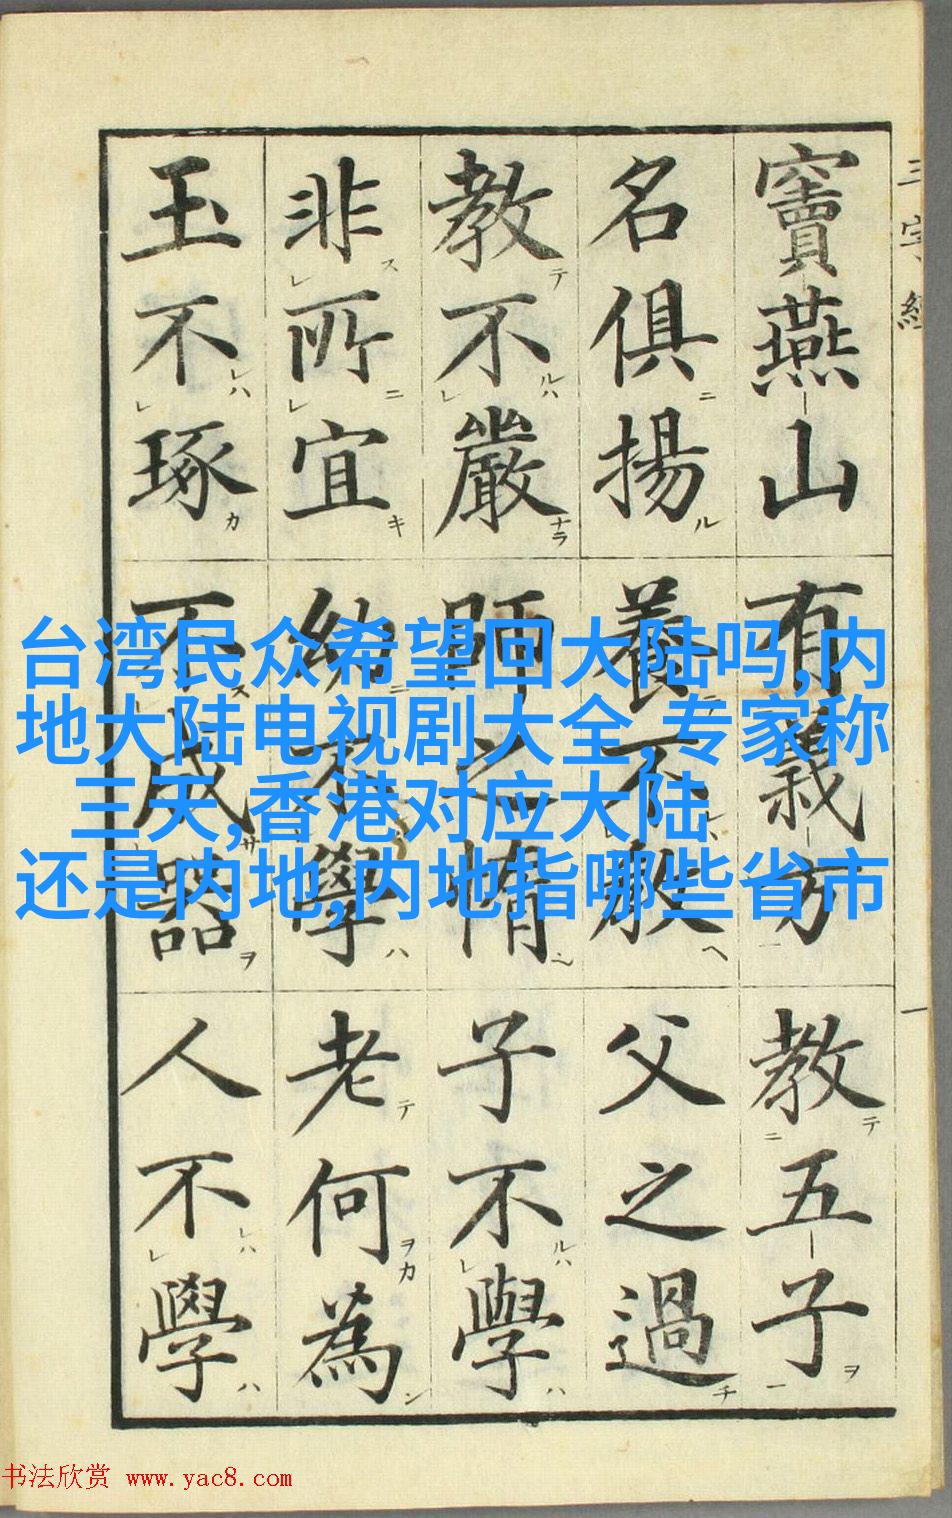 三字經
竇燕山有義方教五子
名俱揚養不教父之過
教不嚴師之惰子不學
非所宜幼不學老何為
玉不琢不成器人不學
一
台湾民众希望回大陆吗,内
地大陆电视剧大全,专家称
三天,香港对应大陆
还是内地,内地指哪些省市
书法欣赏 www.yac8.com